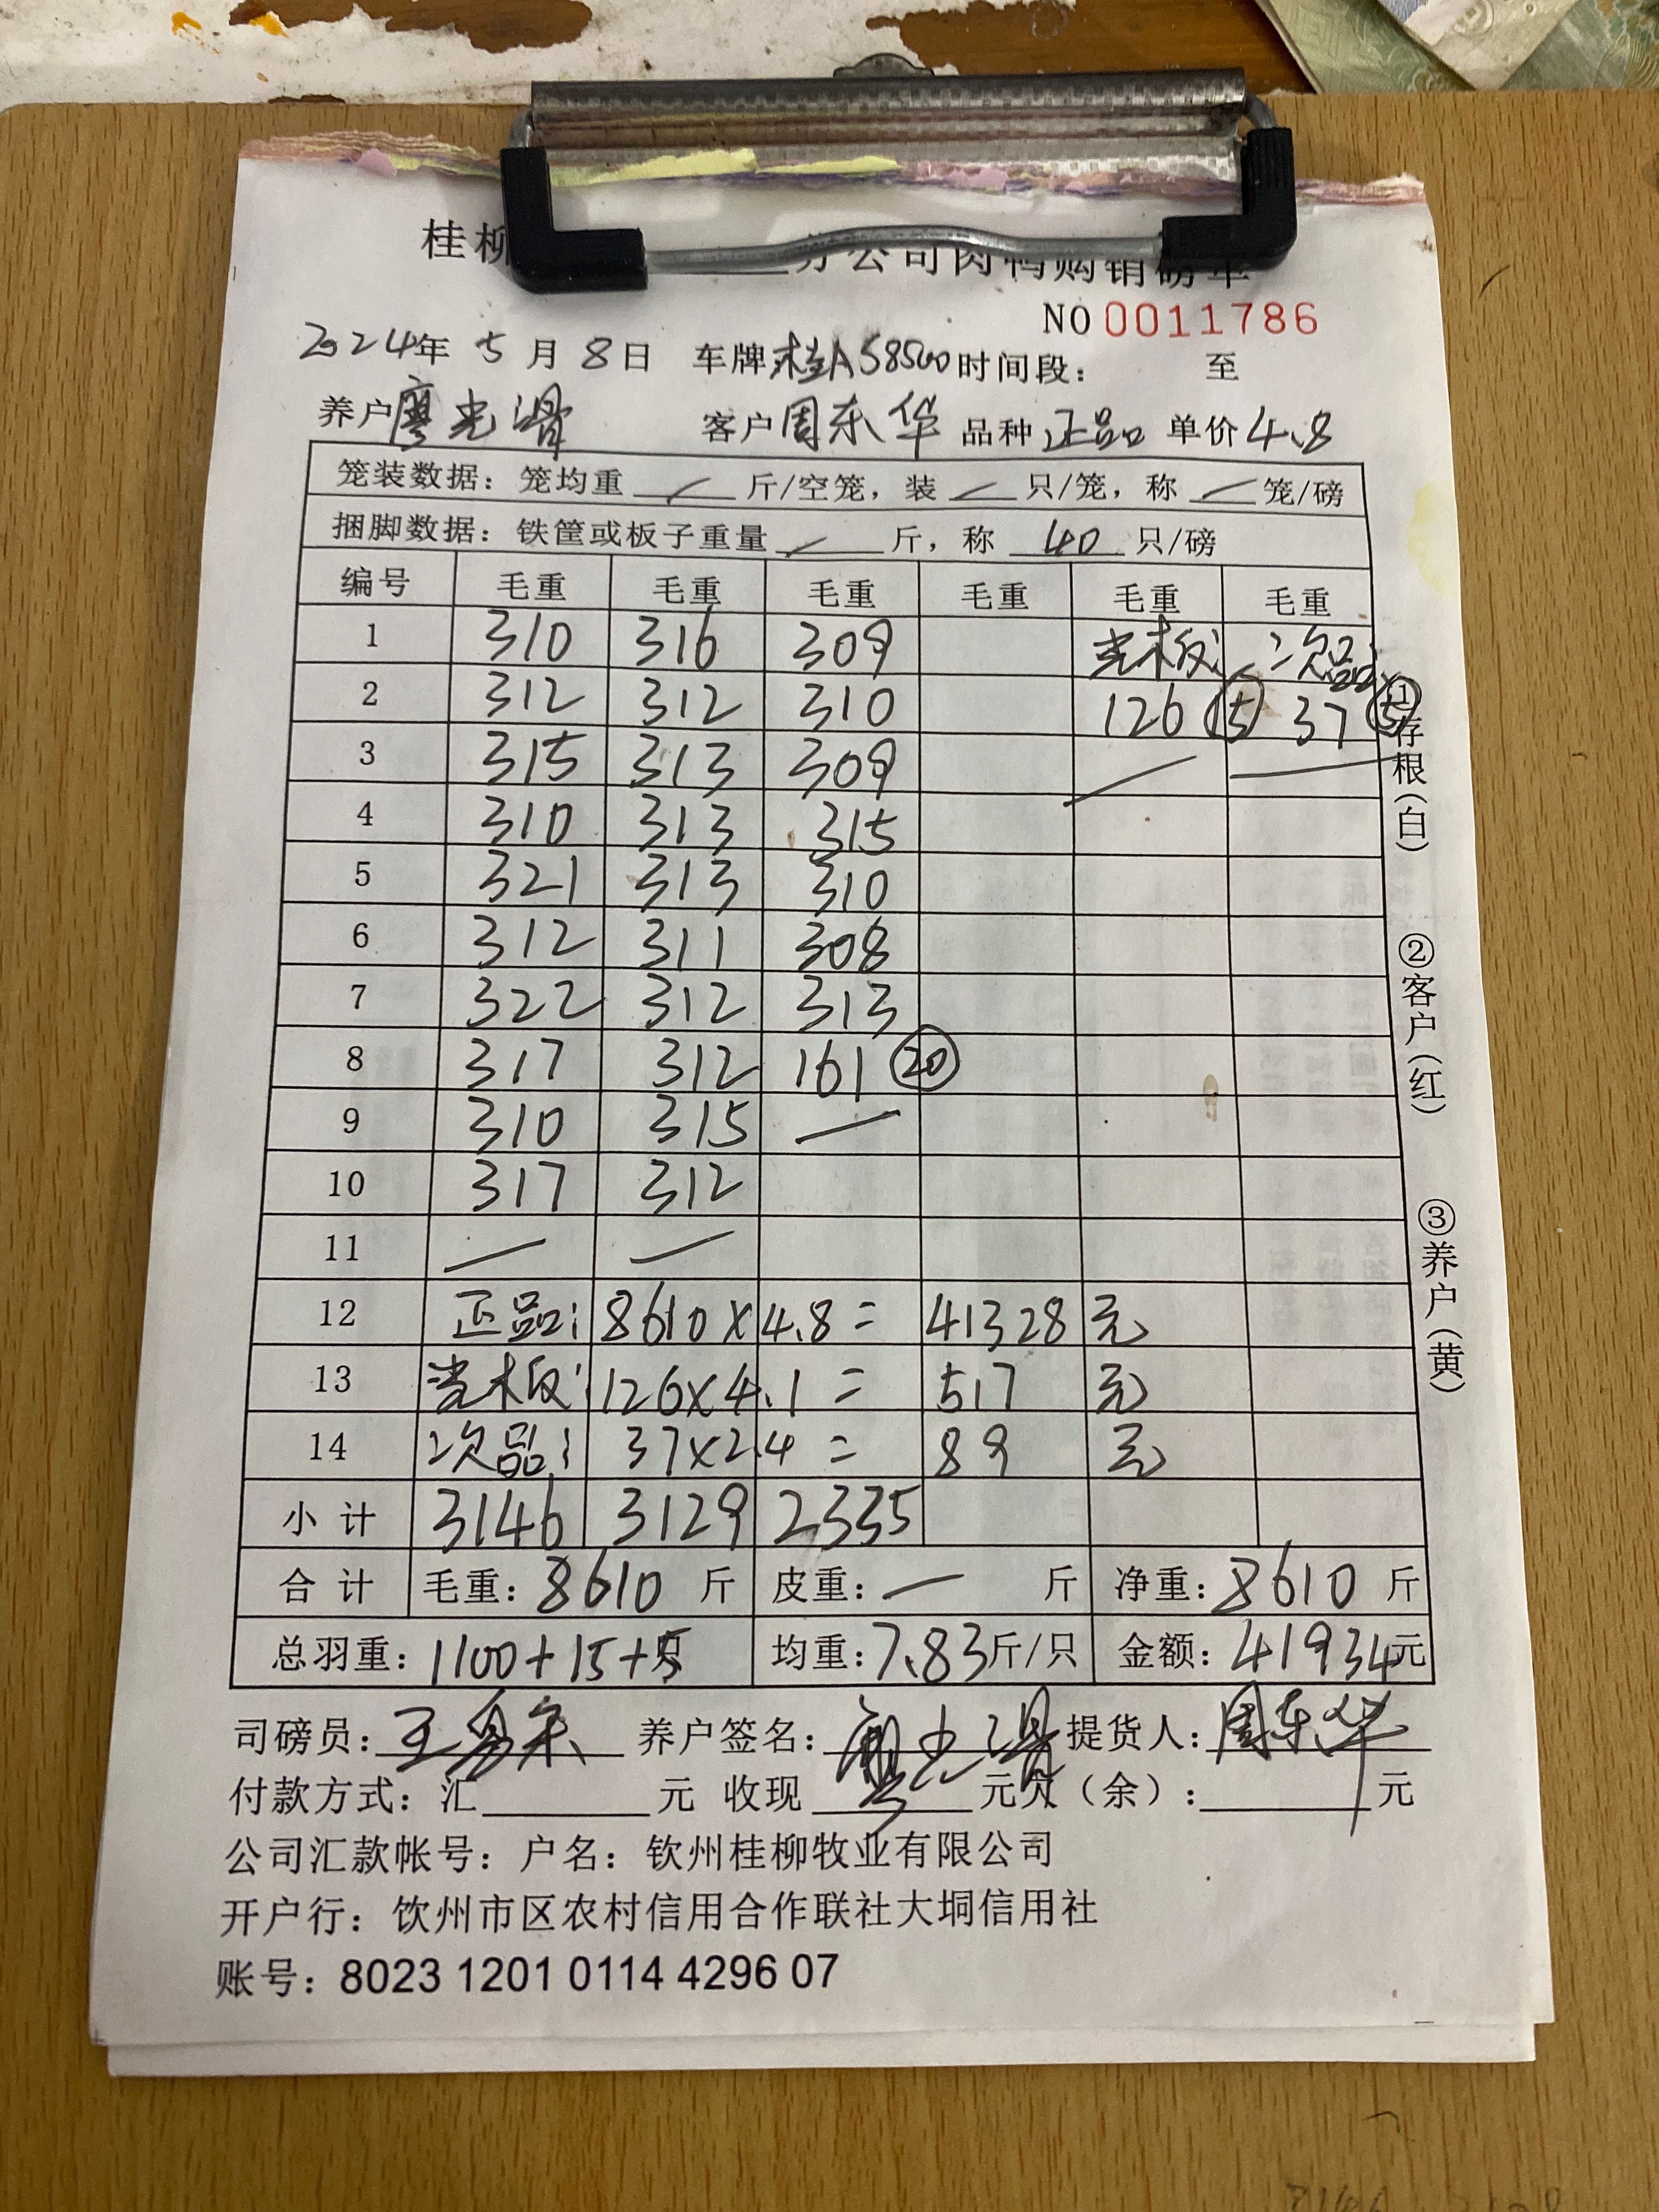 桂柳 分公司肉鸭购销磅单
NO 0011786
2024年 5 月 8 日 车牌 桂A58500 时间段： 至
养户 廖光滑 客户 周东华 品种 正品 单价 4.8
笼装数据：笼均重 / 斤/空笼，装 / 只/笼，称 / 笼/磅
捆脚数据：铁筐或板子重量 / 斤，称 40 只/磅
编号 毛重 毛重 毛重 毛重 毛重 毛重
1 310 316 309 光板 次品
2 312 312 310 126 15 37 5
3 315 313 309
4 310 313 315
5 321 313 310
6 312 311 308
7 322 312 313
8 317 312 161 20
9 310 315 —
10 317 312
11 — —
12 正品: 8610×4.8= 41328 元
13 126×4.1= 517 元
14 次品: 37×2.4= 89 元
小计 3146 3129 2335
合计 毛重：8610 斤 皮重：— 斤 净重：8610 斤
总羽重：1100+15+5 均重：7.83斤/只 金额：41934元
司磅员： 养户签名： 提货人：周东华
付款方式：汇 元 收现 元欠（余）： 元
公司汇款帐号：户名：钦州桂柳牧业有限公司
开户行：饮州市区农村信用合作联社大垌信用社
账号：8023 1201 0114 4296 07
①存根（白）
②客户（红）
③养户（黄）